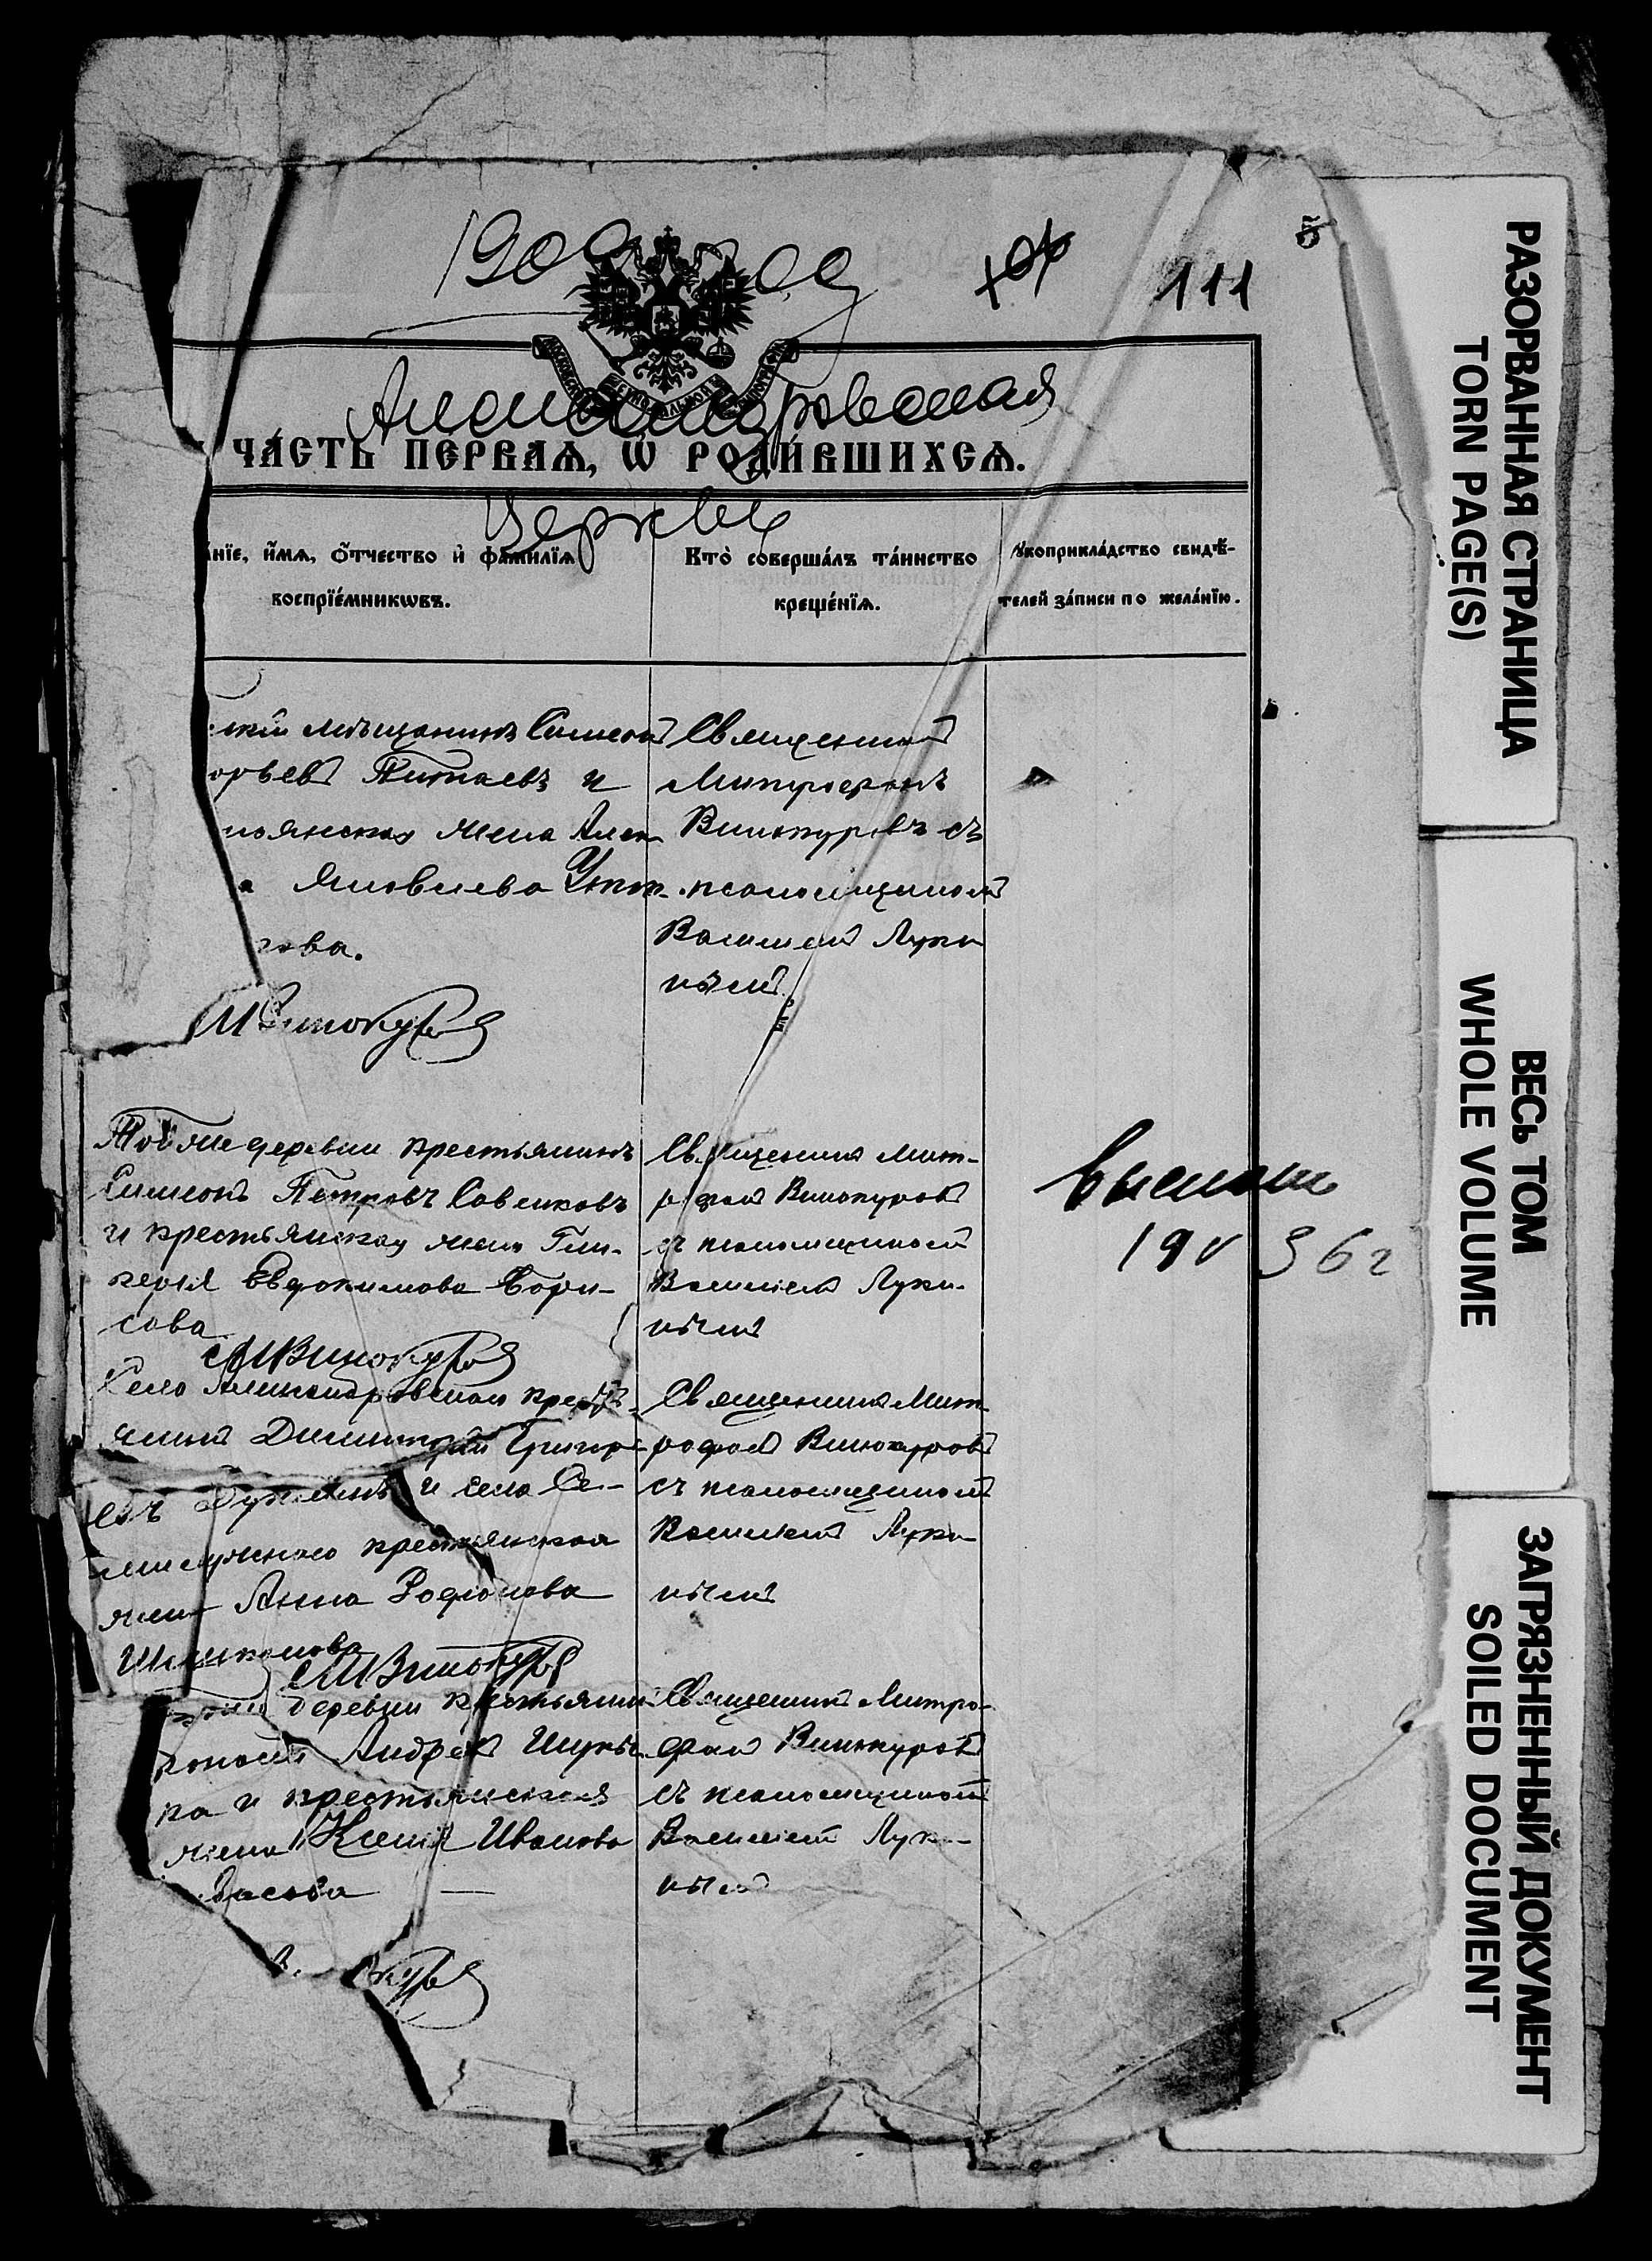 1909 года
111
Александровская
ЧА́СТЬ ПЕ́РВАѦ, Ѡ РОДИ́ВШИХСѦ.
Церквь
а́нїе, и҆́мѧ, ѻ҆́тчество и҆ фами́лїѧ
воспрїе́мникѡвъ.
Кто̀ соверша́лъ та́инство
креще́нїѧ.
ꙋкоприкла́дство свидѣ́-
телей за́писи по жела́нїю.
мѣщанинъ Симеонъ
орьевъ и
янская жена Алек
а Яковлева
ова.
МВинокуровъ
Священникъ
Митрофанъ
Винокуровъ съ
псаломщикомъ
Василіемъ Луки
нымъ
Той же деревни крестьянинъ
Симеонъ Петровъ Савенковъ
и крестьянская жена Гли-
керія Евдокимова Бори-
сова
МВинокуровъ
Священникъ Мит-
рофанъ Винокуровъ
съ псаломщикомъ
Василіемъ Луки-
нымъ
1936г
Села Александровскаго кресть-
янинъ Димитрій Григорь-
евъ и села Се-
крестьянская
жена Анна Родіонова
МВинокуровъ
Священникъ Мит-
рофанъ Винокуровъ
съ псаломщикомъ
Василіемъ Луки-
нымъ
деревни крестьянинъ
Андрей
ка и крестьянская
жена Ксенія Иванова
Власова
куровъ
Священникъ Митро-
фанъ Винокуровъ
съ псаломщикомъ
Василіемъ Луки-
нымъ
РАЗОРВАННАЯ СТРАНИЦА
TORN PAGE(S)
ВЕСЬ ТОМ
WHOLE VOLUME
ЗАГРЯЗНЕННЫЙ ДОКУМЕНТ
SOILED DOCUMENT